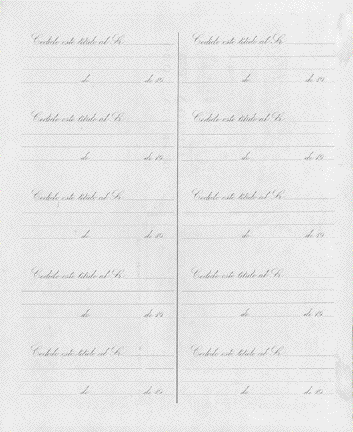 Cedido este título al Sr.
de de 19
Cedido este título al Sr.
de de 19
Cedido este título al Sr.
de de 19
Cedido este título al Sr.
de de 19
Cedido este título al Sr.
de de 19
Cedido este título al Sr.
de de 19
Cedido este título al Sr.
de de 19
Cedido este título al Sr.
de de 19
Cedido este título al Sr.
de de 19
Cedido este título al Sr.
de de 19